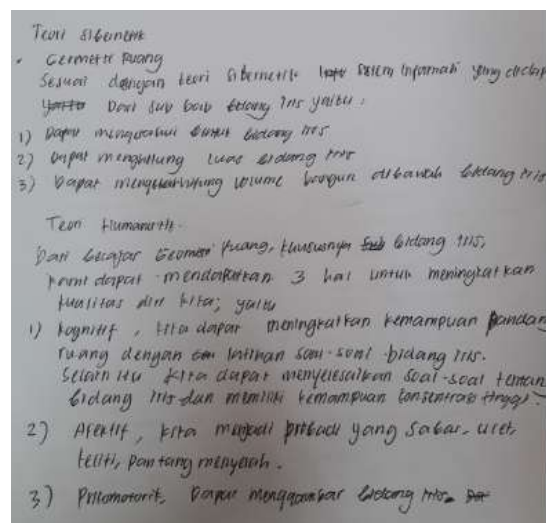 Teori Sibernetik
• Geometri Ruang
Sesuai dengan teori Sibernetik sistem informasi yang didap
Dari sub bab bidang Iris yaitu :
1) Dapat mengetahui bentuk bidang Iris
2) Dapat menghitung luas bidang Iris
3) Dapat menghitung volume bangun dibawah bidang Iris
Teori Humanistik.
Dari belajar Geometri Ruang, khususnya bidang Iris,
kami dapat mendapatkan 3 hal untuk meningkatkan
kualitas diri kita; yaitu
1) kognitif, kita dapat meningkatkan kemampuan pandang
ruang dengan latihan soal-soal bidang Iris.
Selain itu kita dapat menyelesaikan soal-soal tentang
bidang Iris dan memiliki kemampuan konsentrasi tinggi.
2) Afektif, kita menjadi pribadi yang sabar, ulet,
teliti, pantang menyerah.
3) Psikomotorik, Dapat menggambar bidang Iris.